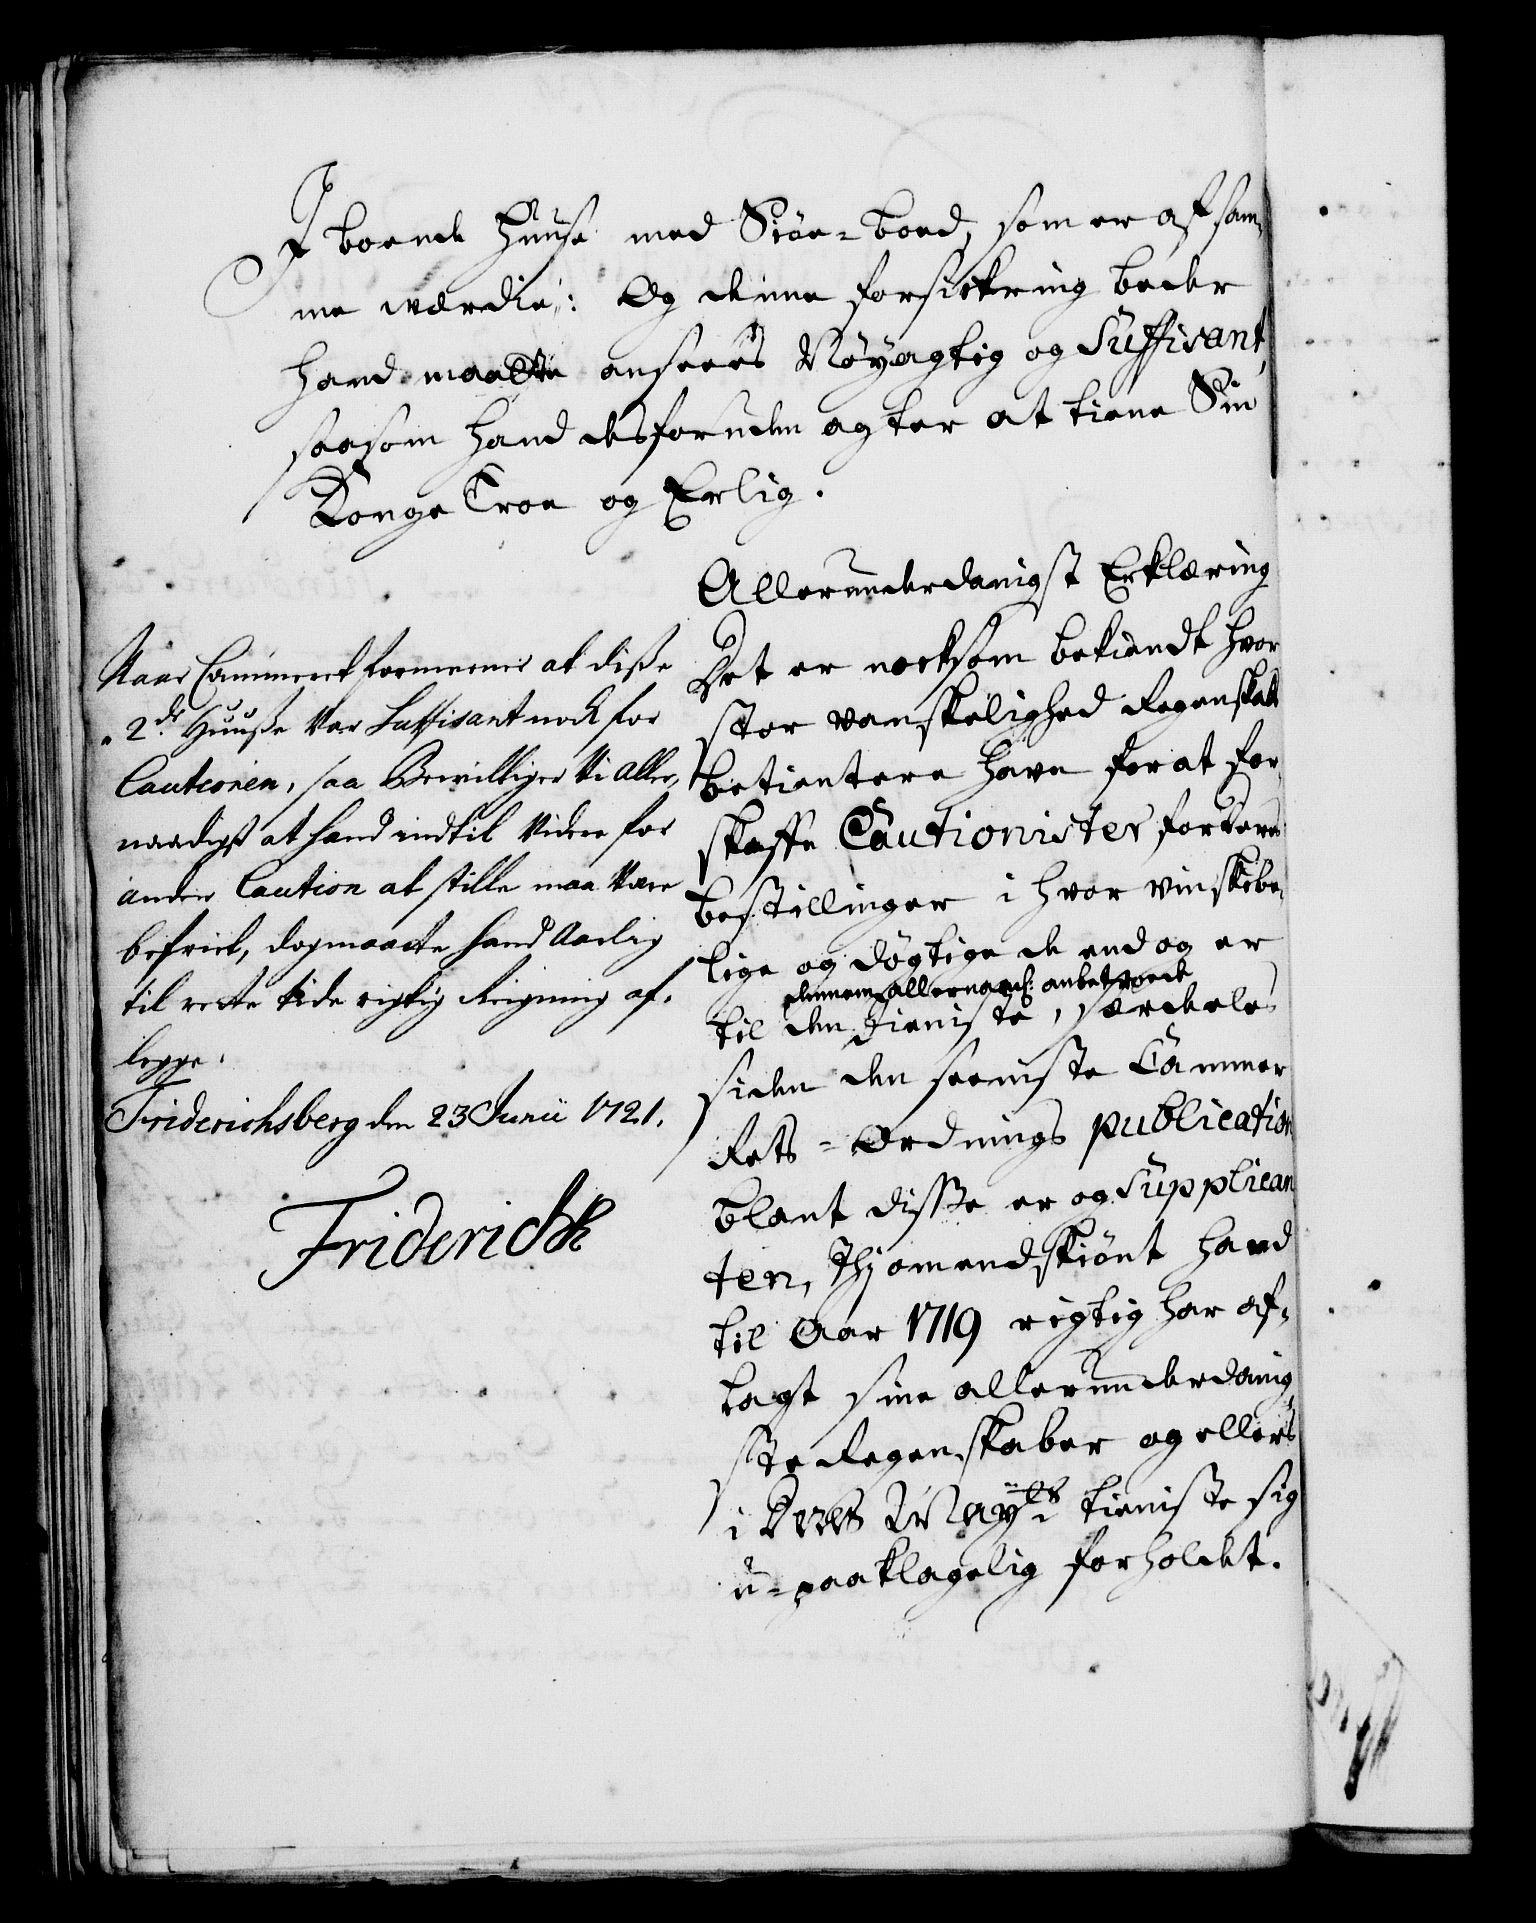 I boende Huuse med Siöe-boed, som er af sam¬
me værdie: Og denne forsickring beder
hand maatte ansees Nöyagtig og Suffisant,
saasom hand desforuden agter at tiene Sin
Konge Troe og Erlig.
Allerunderdanigst Erklæring
Det er nocksom bekiendt hvor
stor vanskelighed Regenskabs
betientere have for at for¬
skaffe Cautionister for deres
bestillinger i hvor vinskibe¬
lige og dögtige de endog er
dennem allernaad: anbetroede
til den Tieniste, særdeles
siden den seeniste Cammer
Rets-Ordnings publication
blant disse er og Supplican
ten, Ihvorvendskiönt hand
til Aar 1719 rigtig har af¬
lagt sine allerunderdanig¬
ste Regenskaber og ellers
i Deres May:ts tieniste sig
u-paaklagelig forholdet.
Naar Cammeret formeener at disse
2de Huuse var Suffisant nock for
Cautionen, saa Bewilliger Vi aller¬
naadigst at hand indtil Videre for
anden Caution at stille maa Være
befriet, dog maatte hand Aarlig
til rette tide rigtig Reigning af¬
legge.
Friderichsberg den 23 Junii 1721.
Friderich R